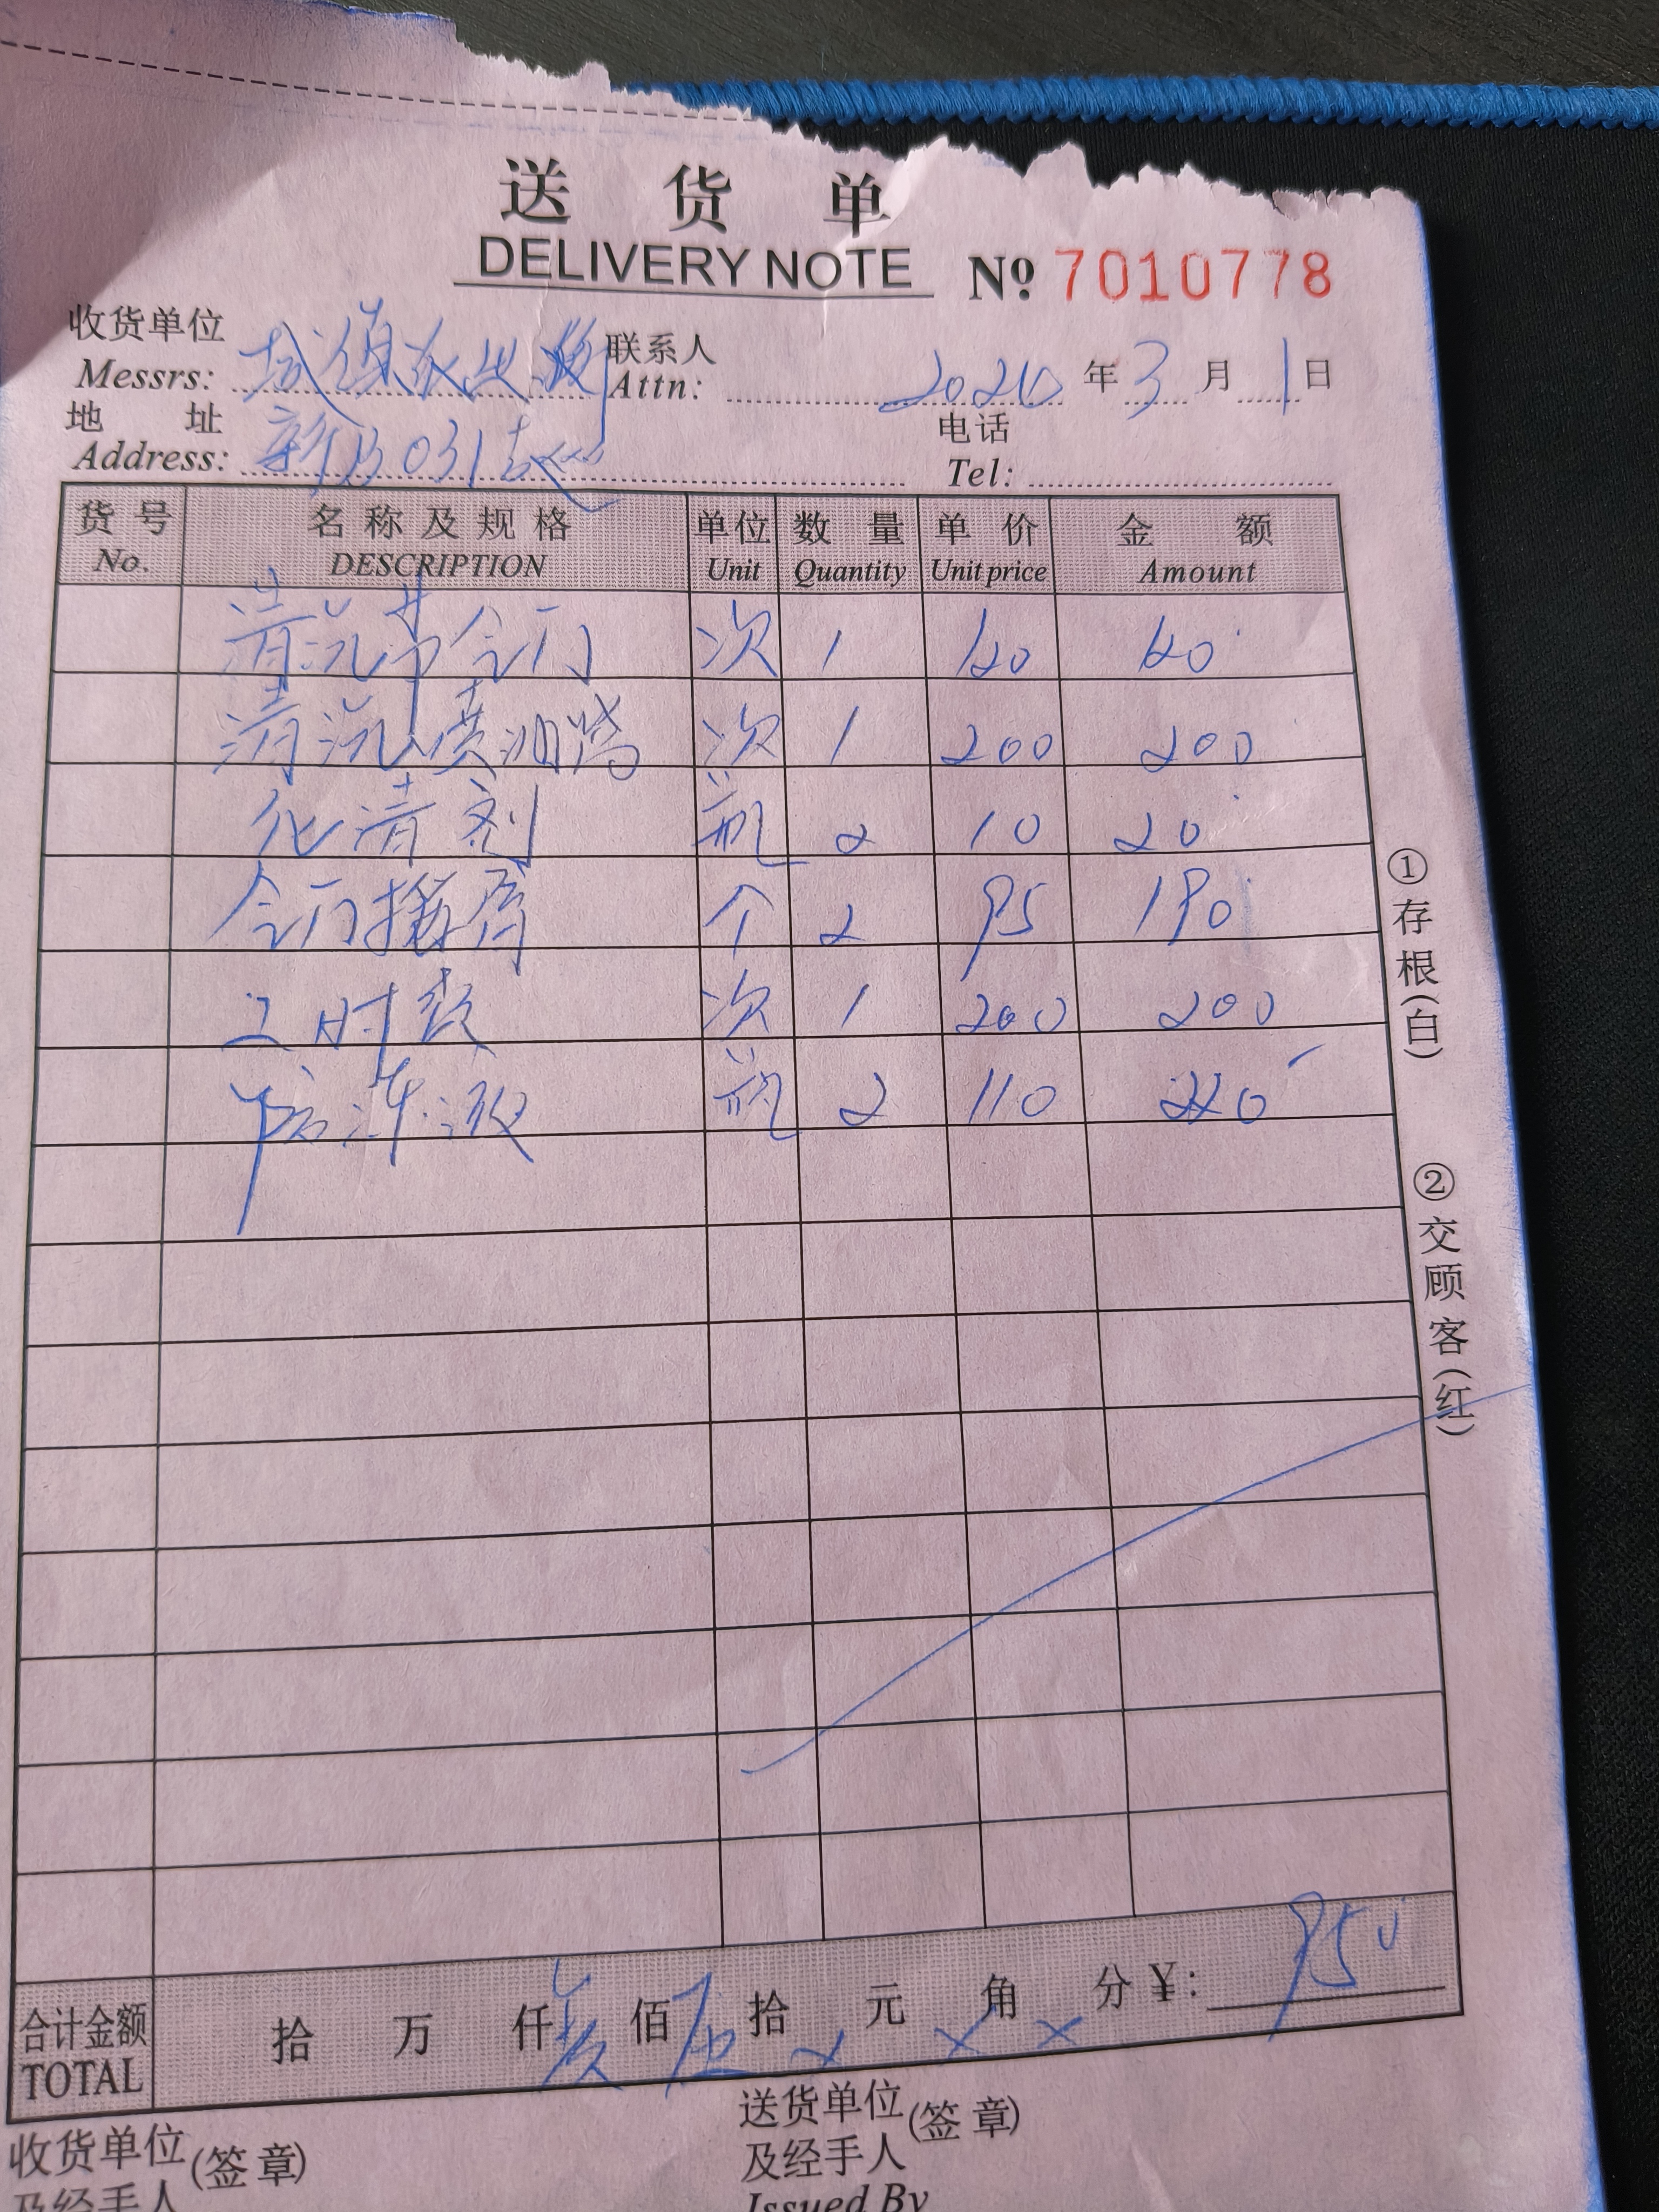 送货单
DELIVERY NOTE № 7010778
收货单位 联系人
Messrs: Attn: 年 3 月 1 日
地址 电话
Address: 新B031 Tel:
货号 名称及规格 单位 数量 单价 金额
No. DESCRIPTION Unit Quantity Unit price Amount
清洗节气门 次 1 120 120
清洗喷油嘴 次 1 200 200
化清剂 瓶 2 10 20
个 2 95 190
工时费 次 1 200 200
防冻液 瓶 2 110 220
①存根(白)
②交顾客(红)
合计金额 拾 万 仟 玖 佰 伍 拾 元 × 角 × 分 ¥: 950
TOTAL
收货单位(签章) 送货单位(签章)
及经手人 及经手人
Issued By